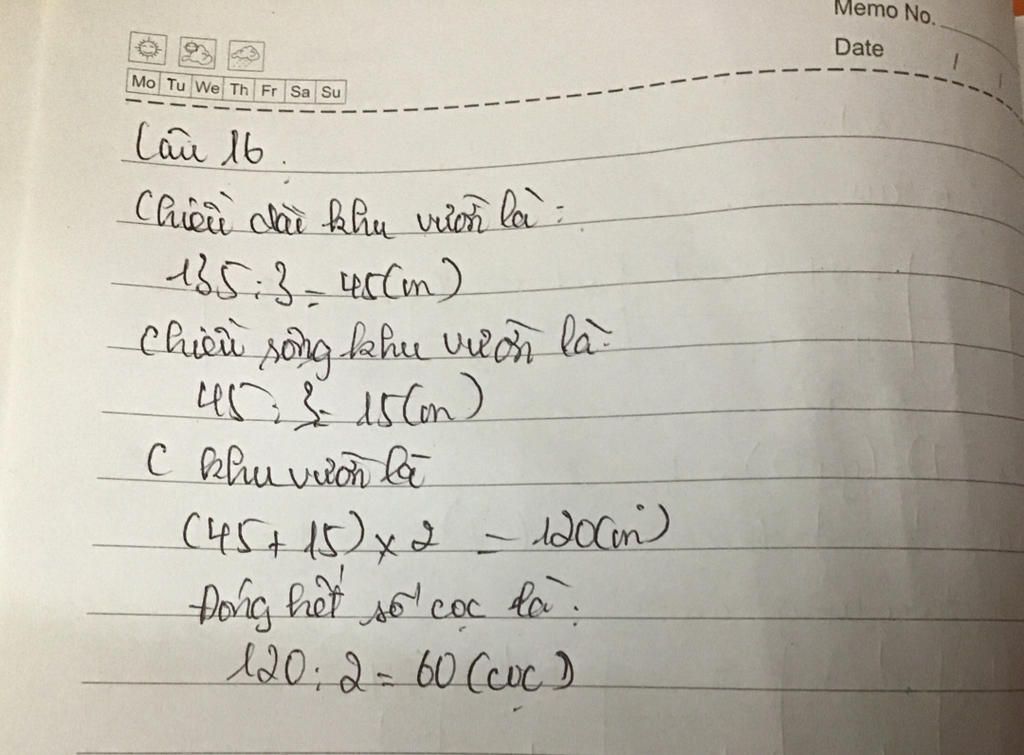 Memo No.
Date / /
Mo Tu We Th Fr Sa Su
Câu 16.
Chiều dài khu vườn là:
135 : 3 = 45 (m)
Chiều rộng khu vườn là:
45 : 3 = 15 (m)
C khu vườn là
(45 + 15) x 2 = 120 (m)
Đóng hết số cọc là:
120 : 2 = 60 (cọc)